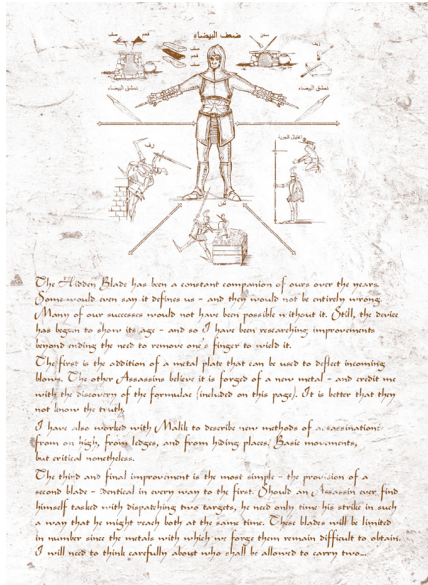 ضعف البيضاء
The Hidden Blade has been a constant companion of ours over the years.
Some would even say it defines us - and they would not be entirely wrong.
Many of our successes would not have been possible without it. Still, the device
has begun to show its age - and so I have been researching improvements
beyond ending the need to remove one's finger to wield it.
The first is the addition of a metal plate that can be used to deflect incoming
blows. The other Assassins believe it is forged of a new metal - and credit me
with the discovery of the formulae (included on this page). It is better that they
not know the truth.
I have also worked with Malik to describe new methods of assassination:
from on high, from ledges, and from hiding places. Basic movements,
but critical nonetheless.
The third and final improvement is the most simple - the provision of a
second blade - identical in every way to the first. Should an Assassin ever find
himself tasked with dispatching two targets, he need only time his strike in such
a way that he might reach both at the same time. These blades will be limited
in number since the metals with which we forge them remain difficult to obtain.
I will need to think carefully about who shall be allowed to carry two...